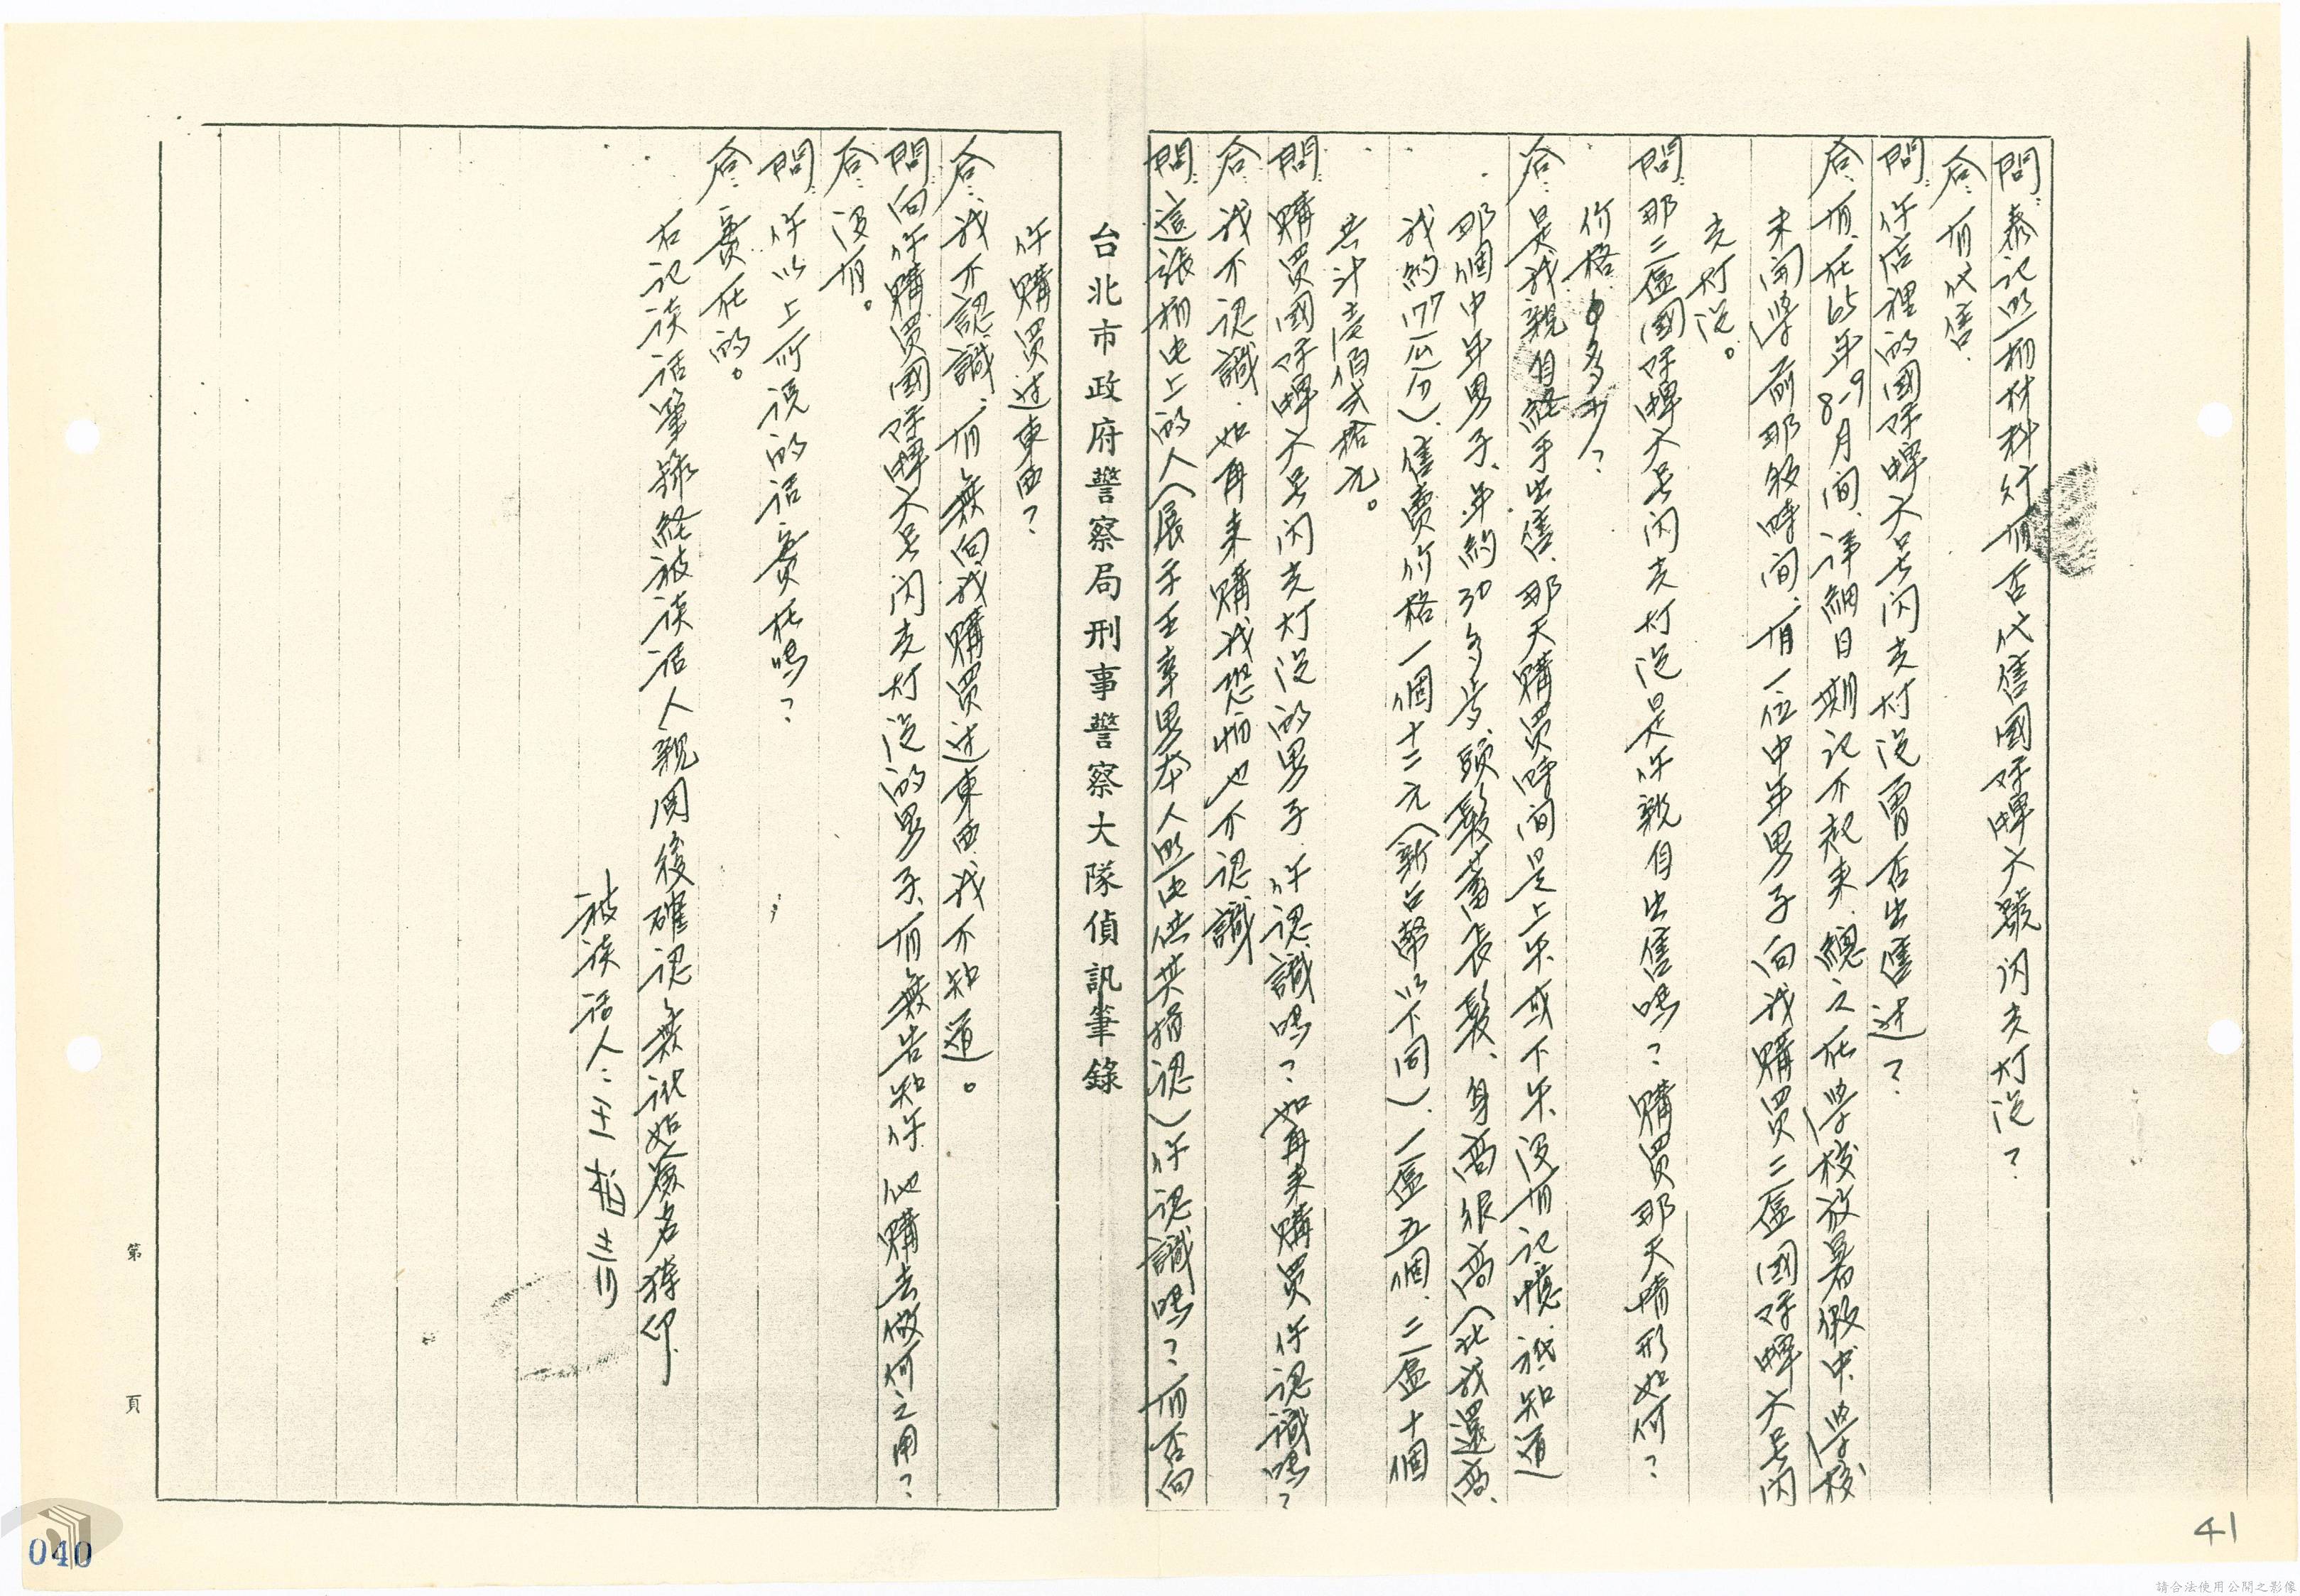 問：泰記照相材料行有否代售國際牌大號闪光灯泡？
答：有代售．
問：你店裡的國际牌大号闪光灯泡曾否出售过？
答：有、在65年8-9月间、详細日期记不起来、總之在學校放暑假中、學校
未開學前那段時间、有一位中年男子向我購買三盒國际牌大号闪
光灯泡。
問：那三盒國际牌大号闪光灯泡是你親自出售嗎？購買那天情形如何？
价格多少？
答：是我親自経手出售、那天購買時间是上午或下午、没有记憶、祇知道
那個中年男子、年約30多岁、頭髮蓄長髮、身高很高（比我還高、
我約177公分）、售賣价格一個十二元（新台幣以下同）、一盒五個、二盒十個
共计壹佰貳拾元。
問：購買國际牌大号闪光灯泡的男子、你認識嗎？如再来購買你認識嗎？
答：我不認識、如再来購我恐怕也不認識
問：這張相片上的人（展示王幸男本人照片供其指認）你認識嗎？有否向
台北市政府警察局刑事警察大隊偵訊筆錄
你購買过東西？
答：我不認識、有無向我購買过東西我不知道。
問：向你購買國际牌大号闪光灯泡的男子、有無告知你他購去做何之用？
答：没有。
問：你以上所说的话實在嗎？
答：實在的。
右记谈话筆録経被谈话人親閲後確認無讹始簽名捺印
被谈话人：王
第 頁
040
41
請合法使用公開之影像